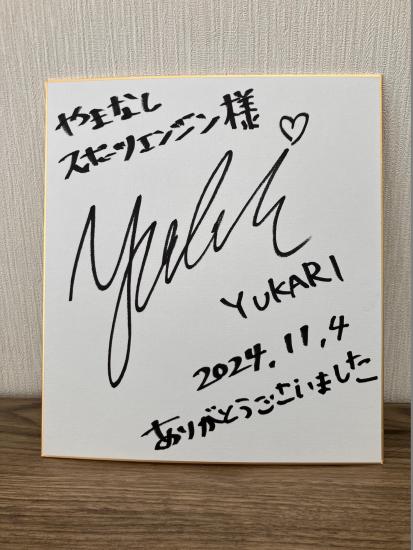 やまなし
スポーツエンジン様
Yukari ♡
YUKARI
2024.11.4
ありがとうございました